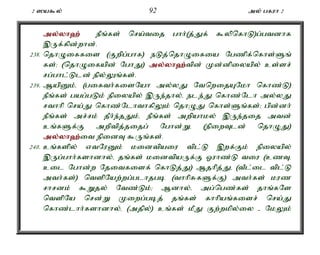 2 ஸயகூல் 92 அல் பகரா 2
அல்லாஹ் நீங்கள் செய்வதை பார்(த்துக் கூலிகொடு)ப்பவனாக
இருக்கின்றான்.
238. தொழுகைகளை (குறிப்பாக) நடுத்தொழுகையை பேணிக்கொள்ளுங்
கள்; (தொழுகையின் போது) அல்லாஹ்வின் முன்னிலையில் உள்ளச்
சப்பாட்டுடன் நில்லுங்கள்.
239. ஆயினும், (பகைவர்களையோ அல்லது வேறெதையுமோ கொண்டு)
நீங்கள் பயப்படும் நிலையில் இருந்தால், நடந்து கொண்டோ அல்லது
சவாரி செய்து கொண்டோவாகிலும் தொழுது கொள்ளுங்கள்; பின்னர்
நீங்கள் அச்சம் தீர்ந்ததும், நீங்கள் அறியாமல் இருந்ததை அவன்
உங்களுக்கு அறிவித்ததைப் போன்று (நிறைவுடன் தொழுது)
அல்லாஹ்வை நினைவு கூருங்கள்.
240. உங்களில் எவரேனும் மனைவியரை விட்டு இறக்கும் நிலையில்
இருப்பார்களானால், தங்கள் மனைவியருக்கு ஓராண்டு வரை (உணவு
உடை போன்ற தேவைகளைக் கொடுத்து) ஆதரித்து, (வீட்டை விட்டு
அவர்கள்) வெளியேற்றப்படாதபடி (வாரிசுகளுக்கு) அவர்கள் மரண
சாசனம் கூறுதல் வேண்டும்; ஆனால், அப்பெண்கள் தாங்களே
வெளியே சென்று முறைப்படித் தங்கள் காரியங்களைச் செய்து
கொண்டார்களானால், (அதில்) உங்கள் மீது குற்றமில்லை - மேலும்